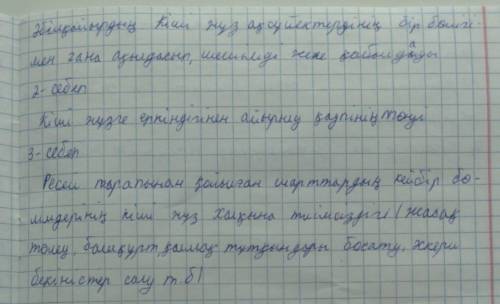 Әбілқайырдың Кіші жүз ақсүйектердінің бір бөлігі-
мен ғана ақылдасып, шешімді жеке қабылдады
2-себеп
Кіші жүзге еркіндігінен айырылу қаупінің төнуі
3-себеп
Ресей тарапынан қойылған шарттардың кейбір бө-
лімдерінің кіші жүз халқына тиімсіздігі (жасақ
төлеу, башқұрт, қалмақ тұтқындары босату, әскери
бекіністер салу т.б)